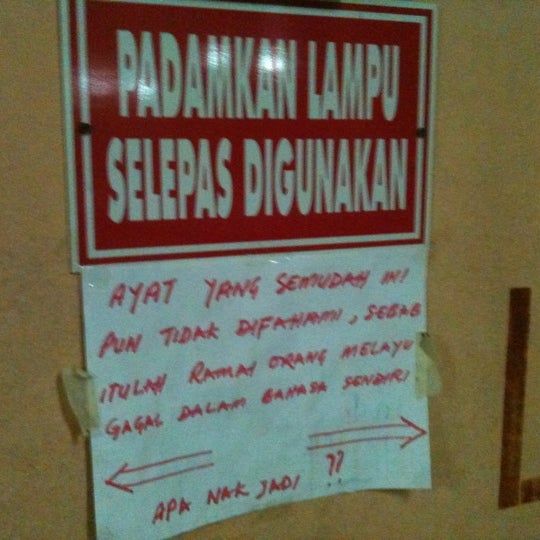 PADAMKAN LAMPU
SELEPAS DIGUNAKAN
AYAT YANG SEMUDAH INI
PUN TIDAK DIFAHAMI, SEBAB
ITULAH RAMAI ORANG MELAYU
GAGAL DALAM BAHASA SENDIRI
APA NAK JADI ??